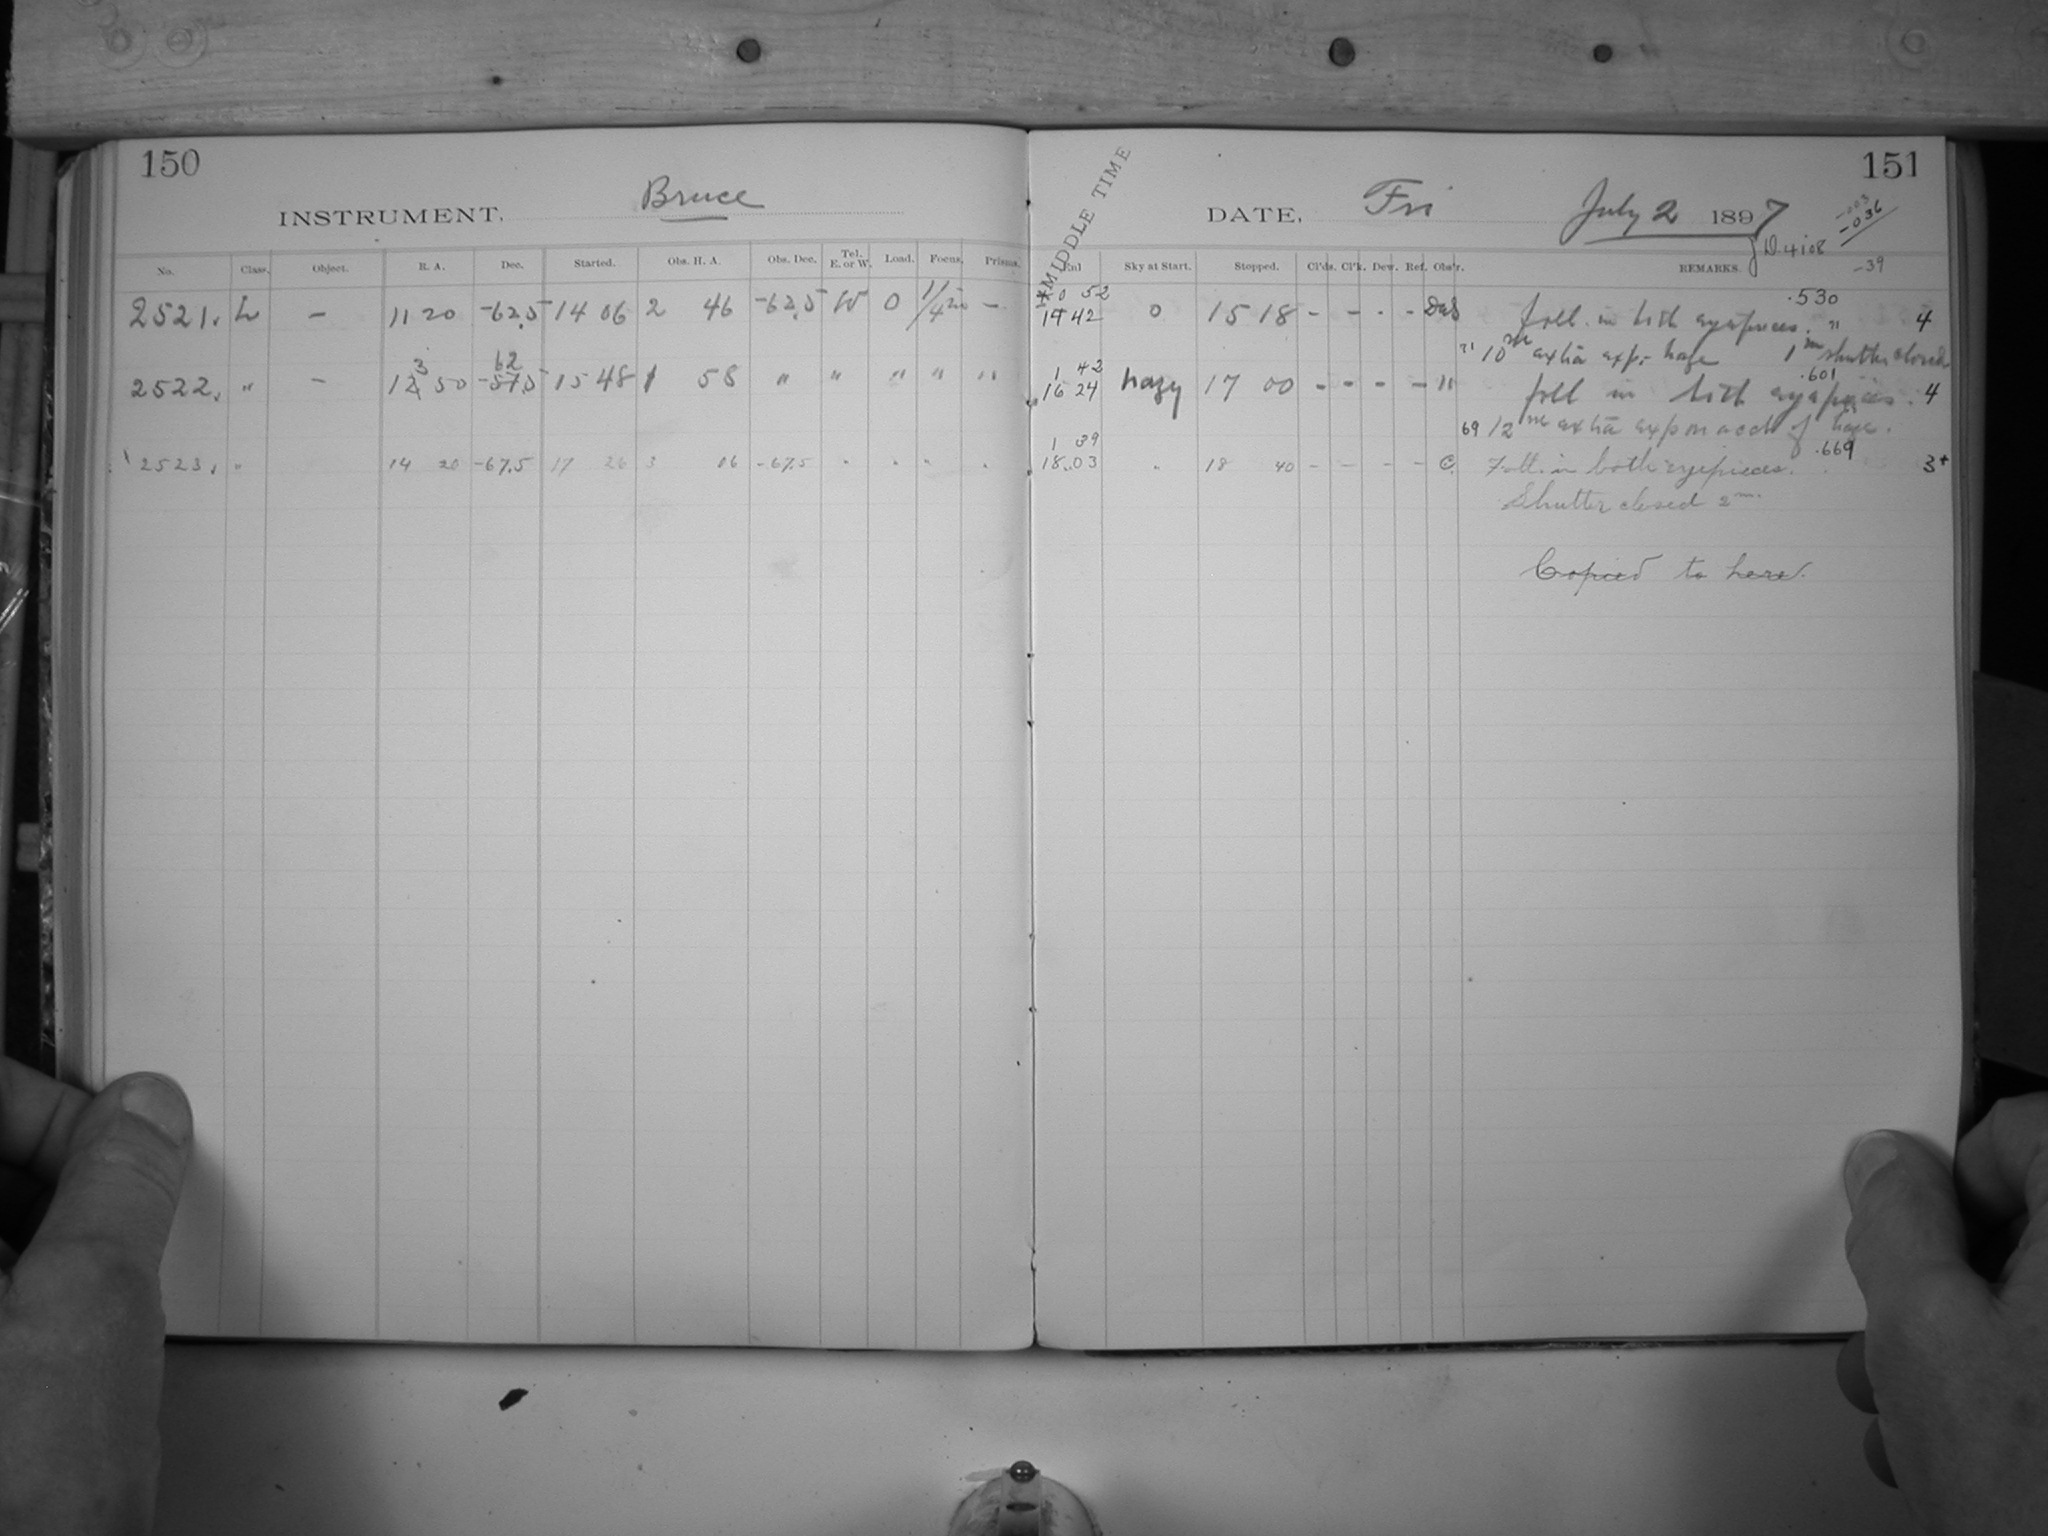 150
INSTRUMENT, Bruce
No. Class. Object. R. A. Dec. Started. Obs. H. A. Obs. Dec. Tel. E. or W. Load. Focus. Prisms.
2521. L - 11 20 -62.5 14 06 2 46 -62.5 W 0 -
3 62
2522. " - 12 50 -57.5 15 48 1 58 " " " " "
2523. " 14 20 -67.5 17 26 3 06 -67.5 " " " "
151
MIDDLE TIME
DATE, Fri July 2 1897
-.003
-.036
J D 4108
-39
Sky at Start. Stopped. Cl'ds. Cl'k. Dew. Ref. Obs'r. REMARKS.
0 52 .530
14 42 0 15 18 - - - - foll. in both eyepieces. 4
71 10m extra exp. haze 1m shutter closed
1 42 .601
16 24 hazy 17 00 - - - - " foll in both eyepieces. 4
69 12m extra exp on acct of haze.
1 39 .669
18.03 " 18 40 - - - - C. Foll. in both eyepieces. 3+
Shutter closed 2m.
Copied to here.